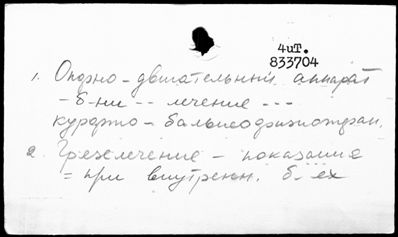 4иТ.
833704
1. Опорно-двигательный аппарат
- б-ни -- лечение ---
курорто-бальнеофизиотерап.
2. Грязелечение - показания
= при внутренн. б-ех